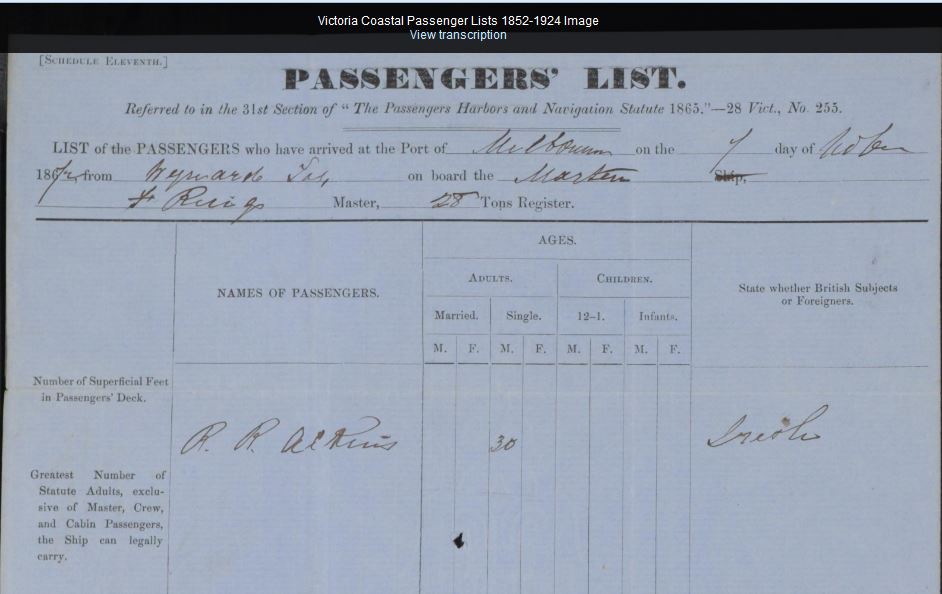 Victoria Coastal Passenger Lists 1852-1924 Image
View transcription
[SCHEDULE ELEVENTH.]
PASSENGERS' LIST.
Referred to in the 31st Section of "The Passengers Harbors and Navigation Statute 1865."—28 Vict., No. 255.
LIST of the PASSENGERS who have arrived at the Port of Melbourne on the 7 day of
186 from on board the Ship,
Master, 28 Tons Register.
AGES.
ADULTS. CHILDREN.
NAMES OF PASSENGERS.
State whether British Subjects
or Foreigners.
Married. Single. 12–1. Infants.
M. F. M. F. M. F. M. F.
Number of Superficial Feet
in Passengers' Deck.
R. R. Atkins 30 Irish
Greatest Number of
Statute Adults, exclu-
sive of Master, Crew,
and Cabin Passengers,
the Ship can legally
carry.